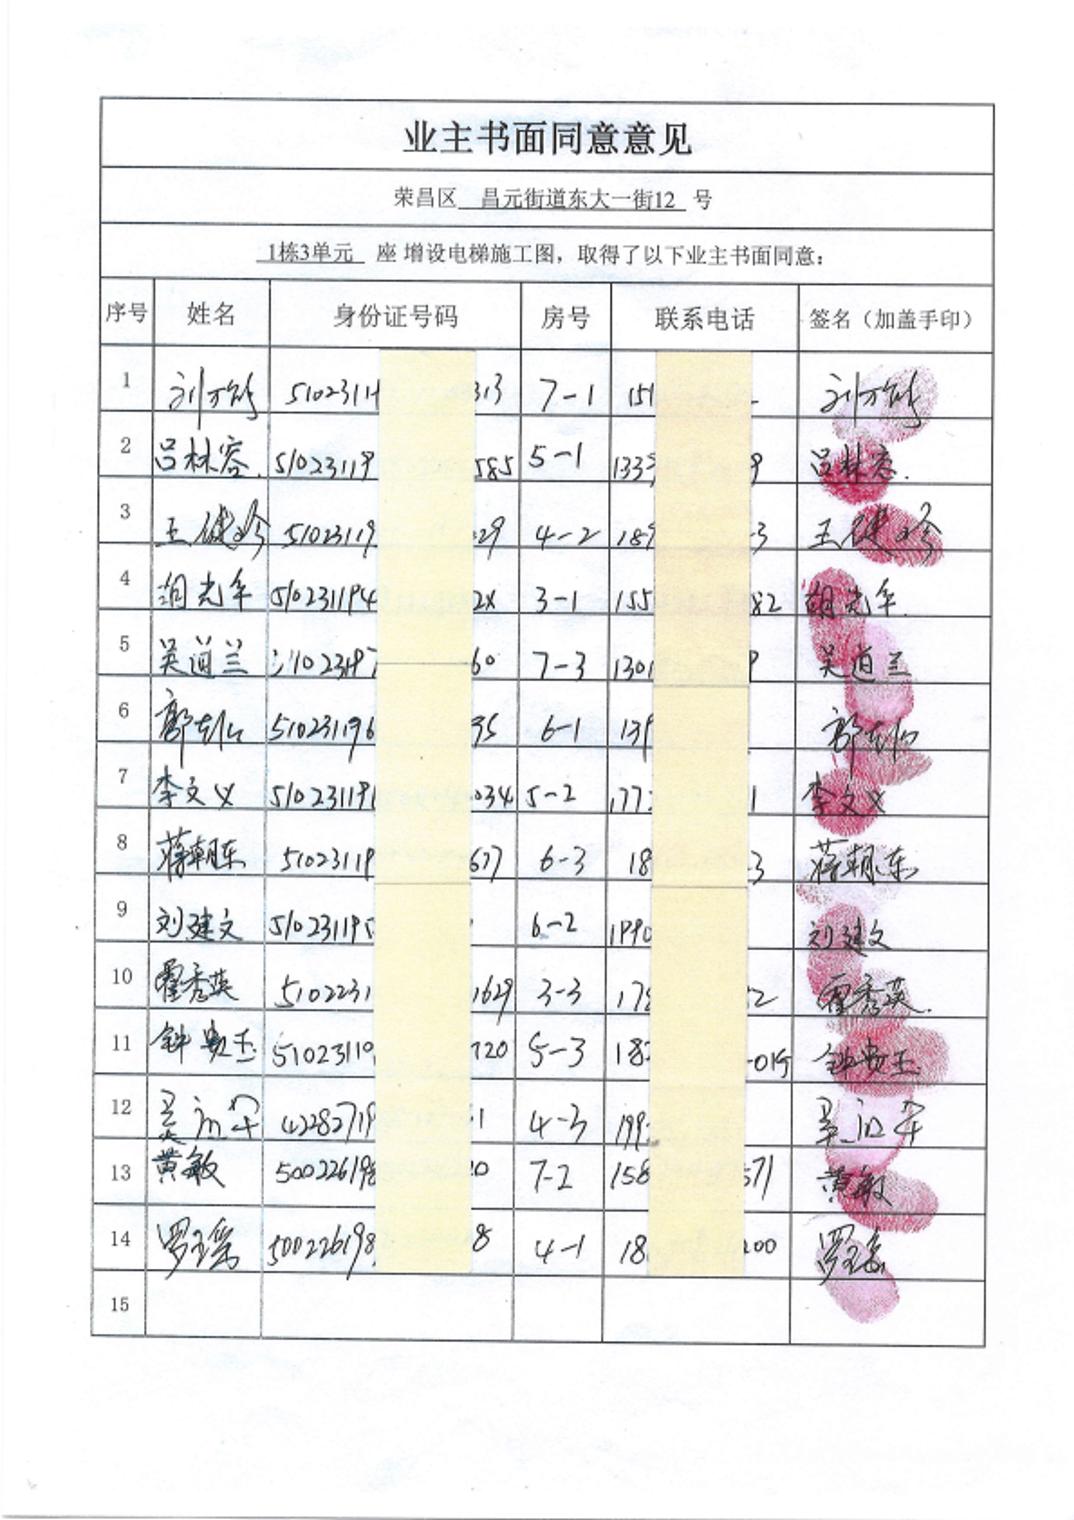 业主书面同意意见
荣昌区 昌元街道东大一街12 号
1栋3单元 座 增设电梯施工图，取得了以下业主书面同意：
序号 姓名 身份证号码 房号 联系电话 签名（加盖手印）
1 7-1 151
2 吕林容. 51023119 585 5-1 133 9 吕林容.
3 王健珍 51023119 29 4-2 189 3 王健珍
4 胡光年 510231194 2X 3-1 155 82 胡光年.
5 吴道兰 7-3 1301 吴道兰
6 510231196 35 6-1 139
7 李文义 51023119 034 5-2 177 1 李文义
8 蒋朝东 51023119 677 6-3 18 3 蒋朝东
9 刘建文 510231195 6-2 1990 刘建文
10 霍秀英 5102231 1629 3-3 178 2 霍秀英.
11 51023110 720 5-3 182
12 42282719 1 4-3 199
13 黄敏 500226198 0 7-2 158 571 黄敏
14 500226198 8 4-1 18 200
15